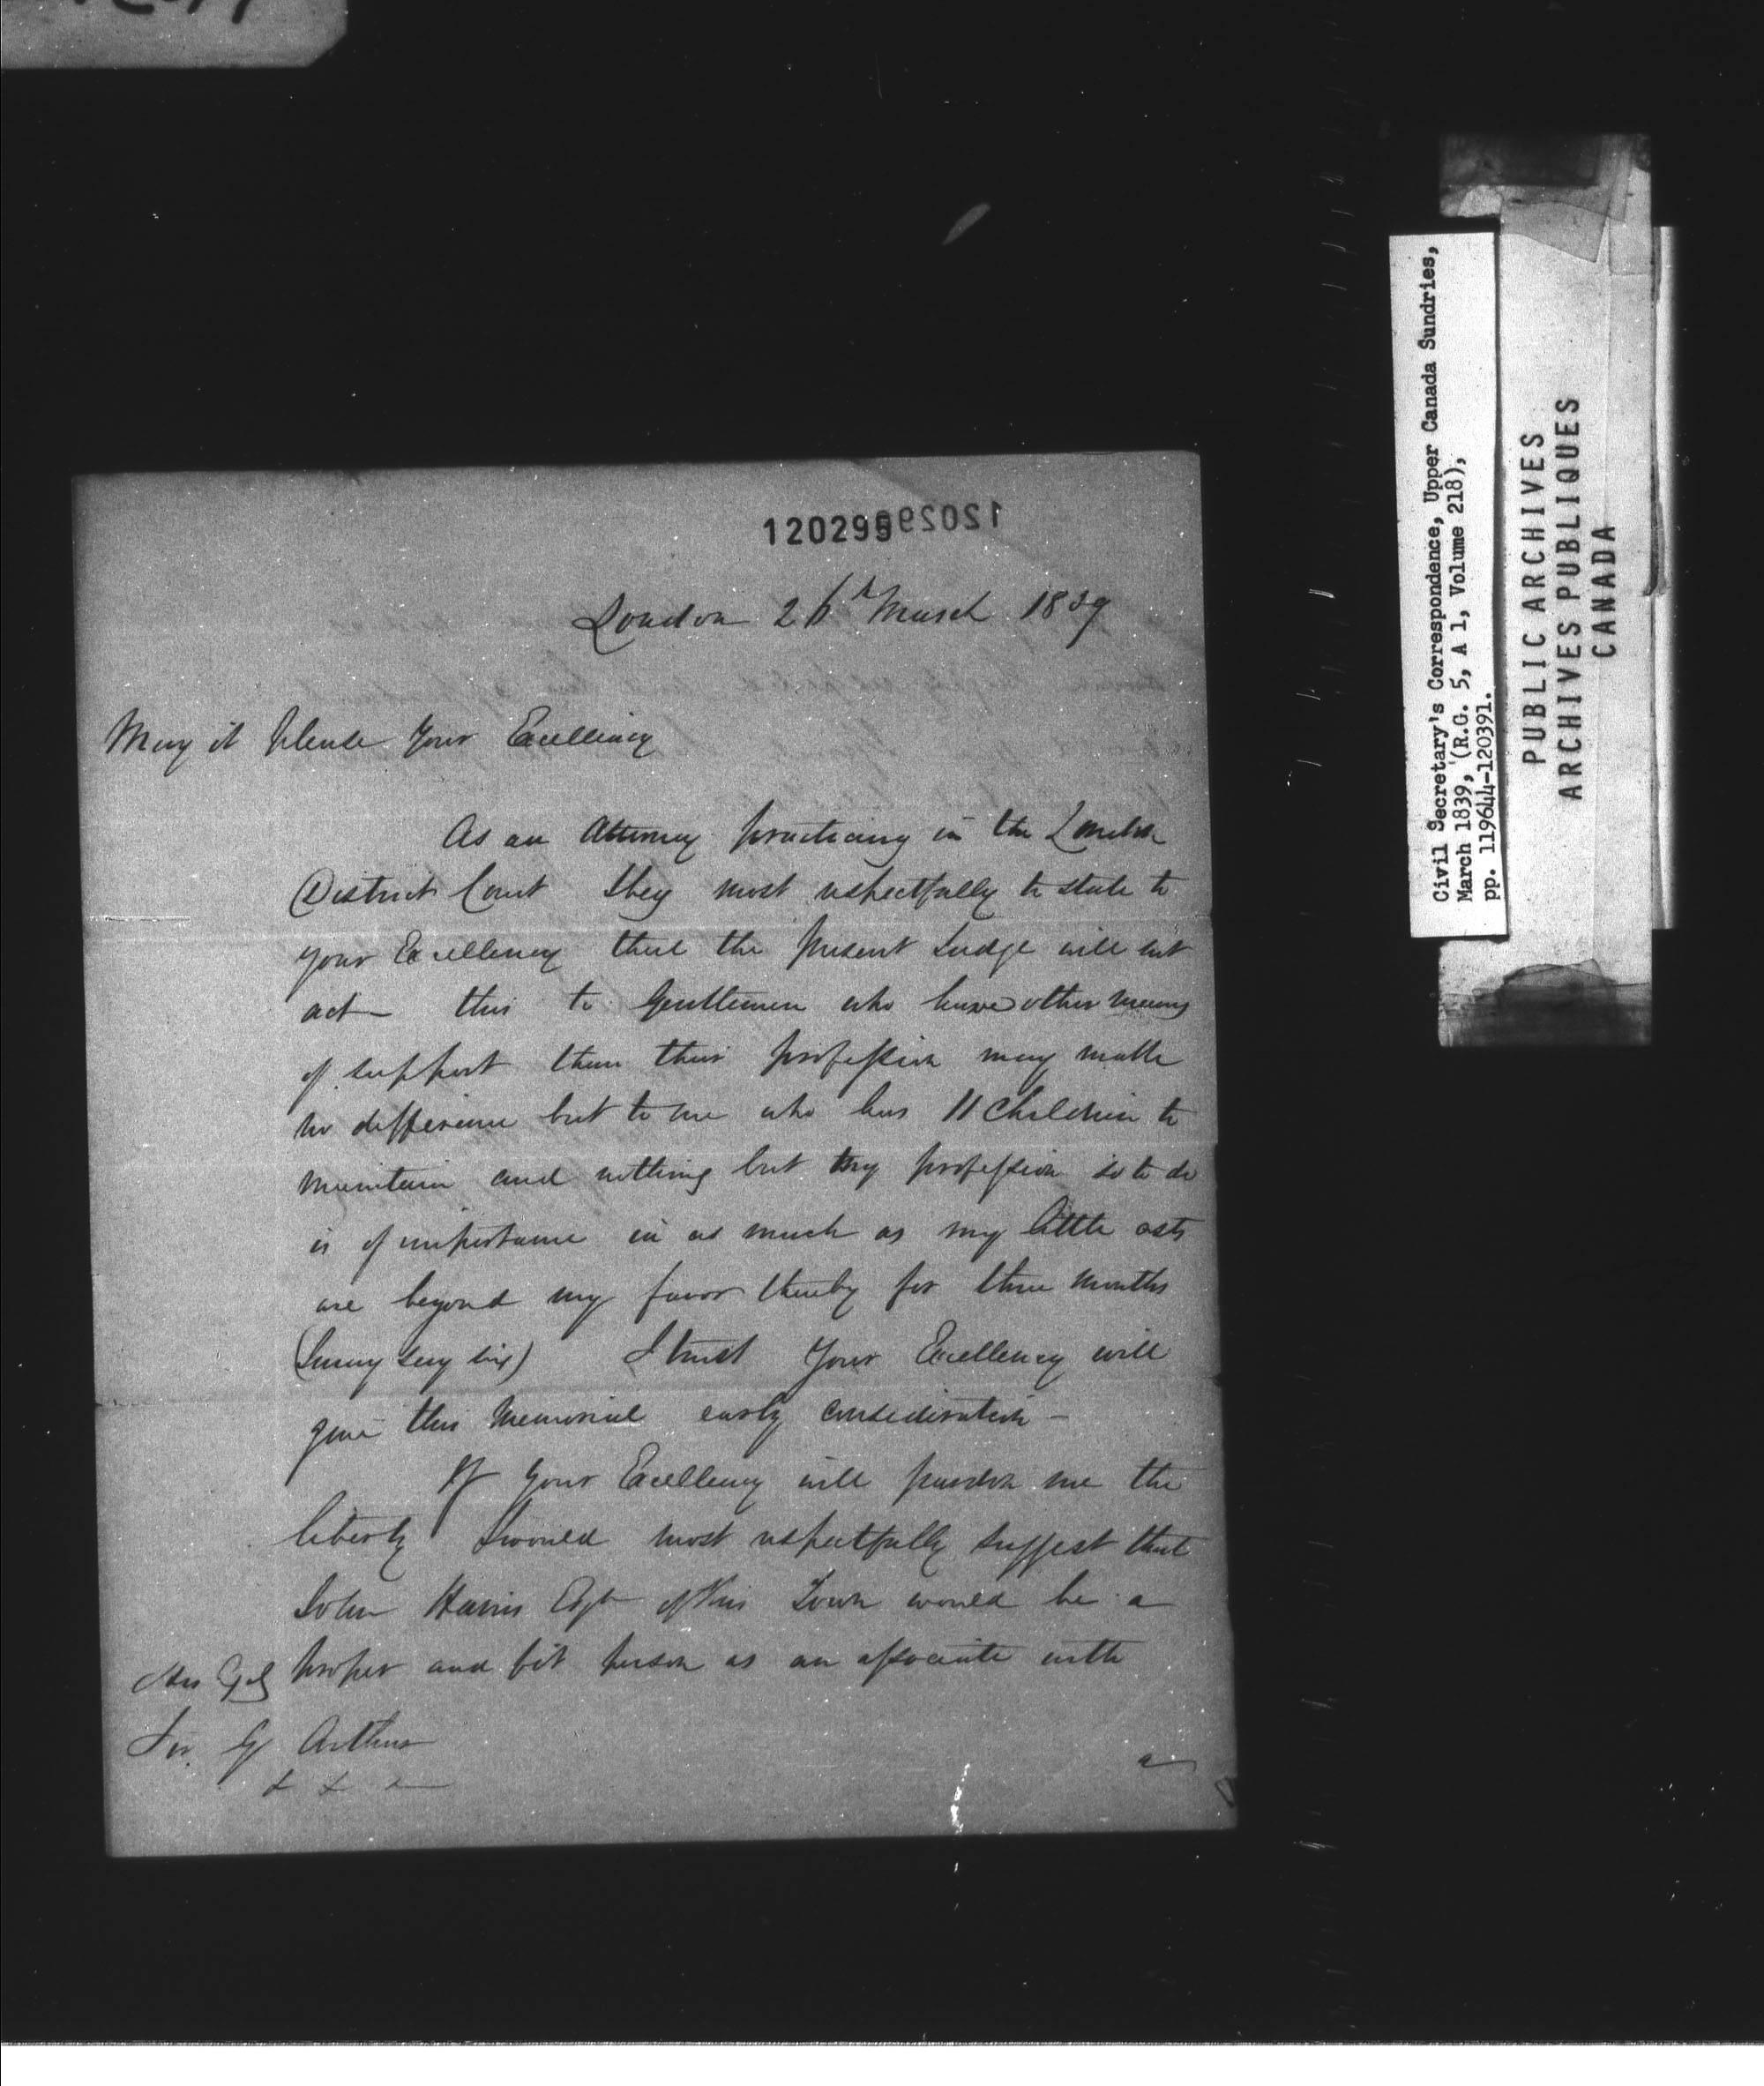 120299
London 26th March 1839
May it Please Your Excellency
As an Attorney practicing in the London
District Court I beg most respectfully to state to
your Excellency that the present Judge will not
act — this to Gentlemen who have other means
of support than their profession may make
no difference but to me who has 11 Children to
maintain and nothing but my profession so to do
is of importance in as much as my little
are beyond my favor thereby for three months
(Say Six) I trust Your Excellency will
give this Memorial early consideration —
If Your Excellency will pardon me the
liberty I would most respectfully suggest that
John Harris Esqr of this Town would be a
proper and fit person as an associate with
His Exy
Sir G Arthur
a
Civil Secretary's Correspondence, Upper Canada Sundries,
March 1839, (R.G. 5, A 1, Volume 218),
pp. 119644-120391.
PUBLIC ARCHIVES
ARCHIVES PUBLIQUES
CANADA